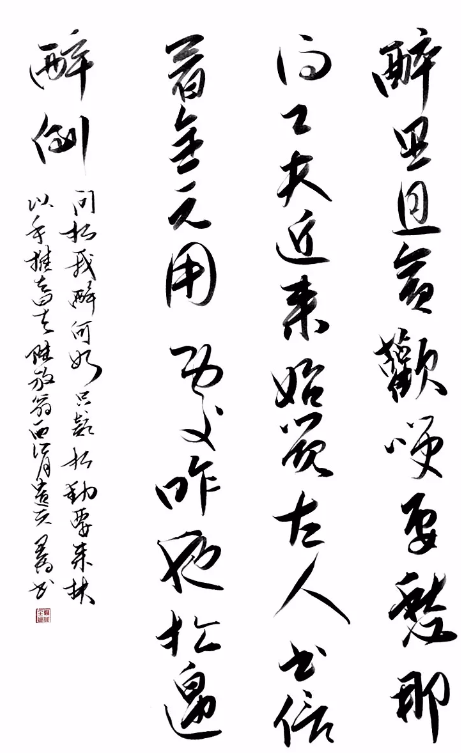 醉里且貪歡咲要愁那
得工夫近来始觉古人书信
着全无用昨夜松邊
醉倒
问松我醉何如只疑松動要来扶
以手推去陸放翁西江月遣兴书